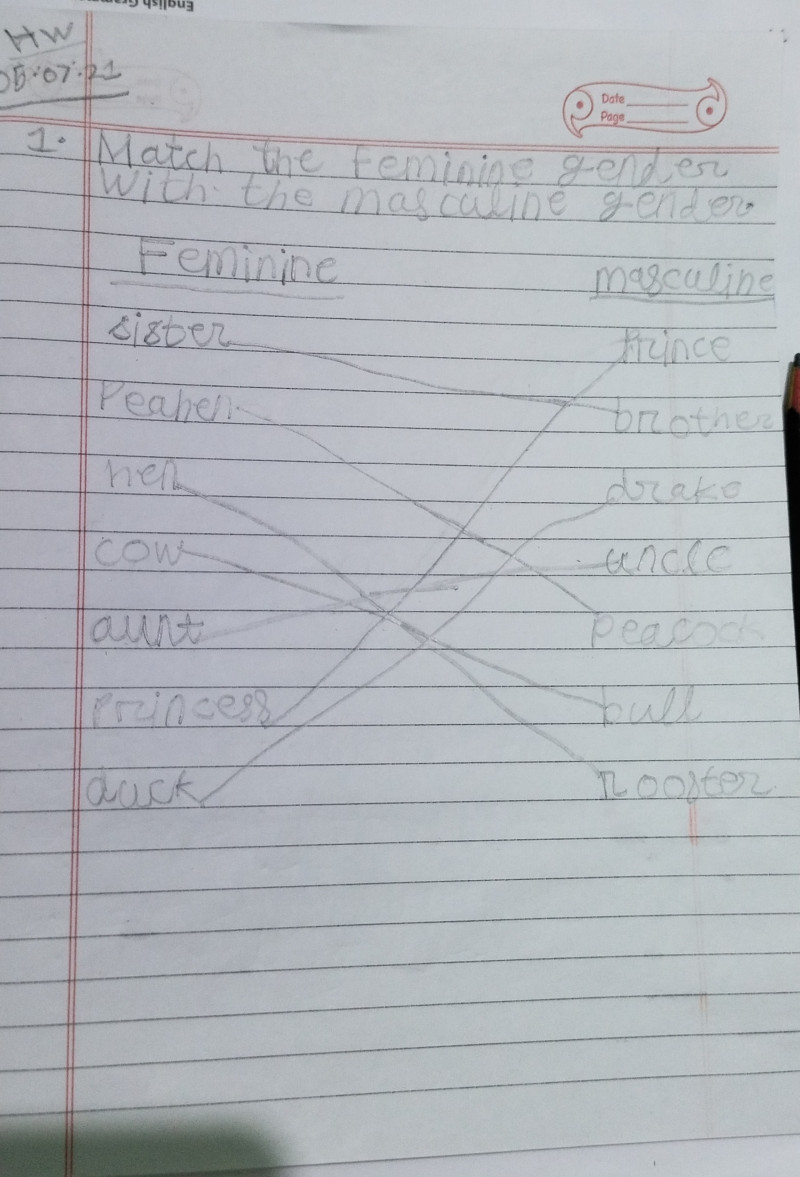 English Gram
HW
05.07.21
Date
Page
1. Match the feminine gender
With the masculine gender.
Feminine masculine
sister prince
Peahen brother
hen drake
cow uncle
aunt peacock
Princess bull
duck rooster